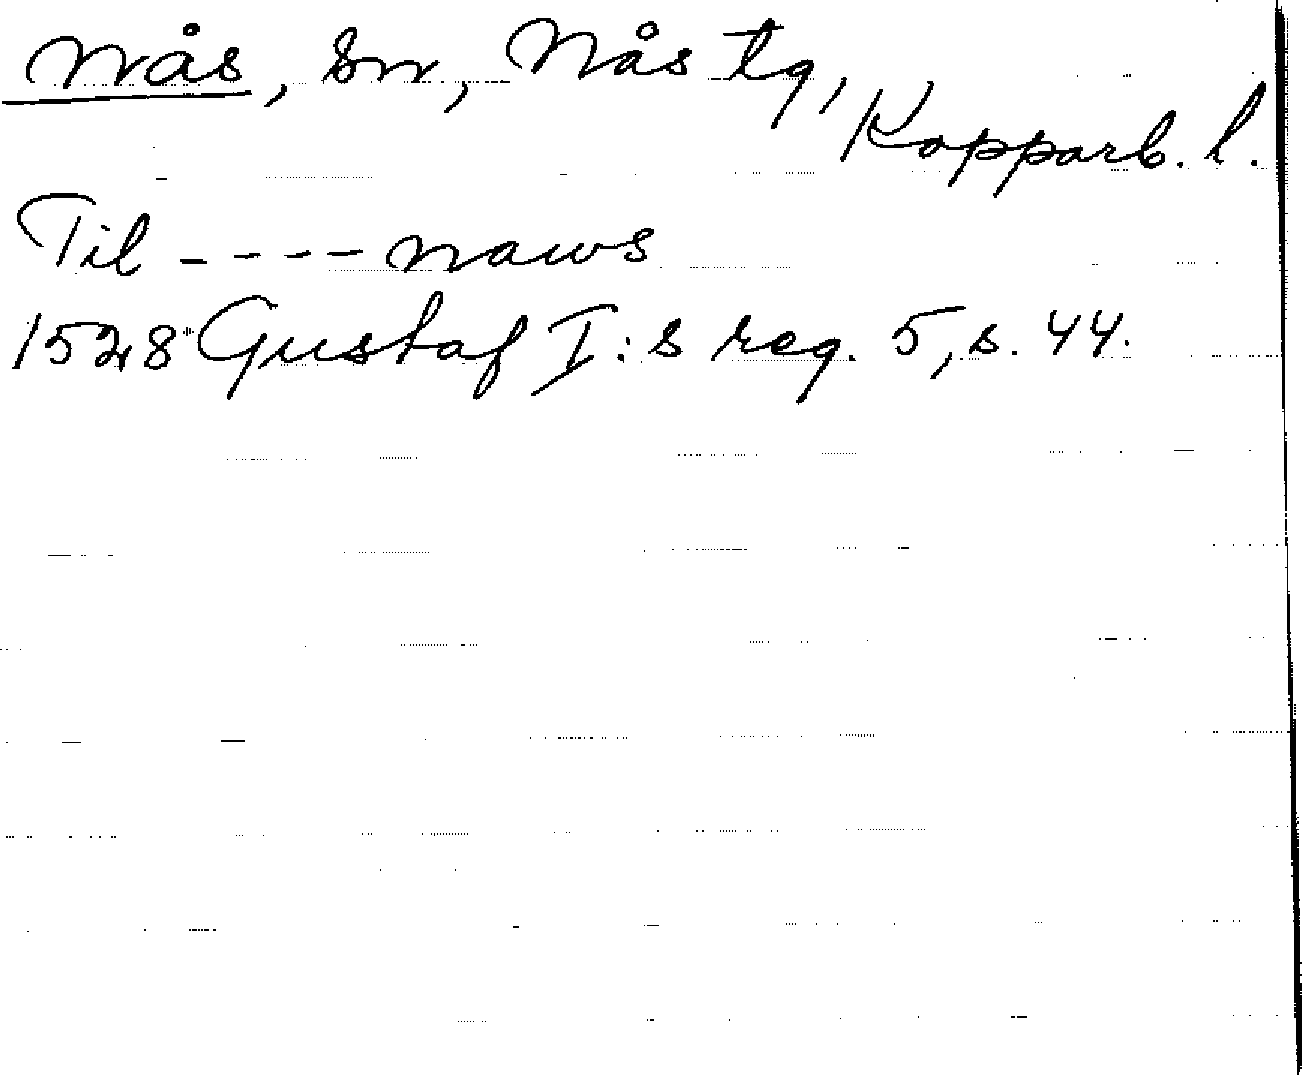 Nås, sn, Nås tg,
Kopparb. l.
Til ---- naws
1528 Gustaf I:s reg. 5, s. 44.